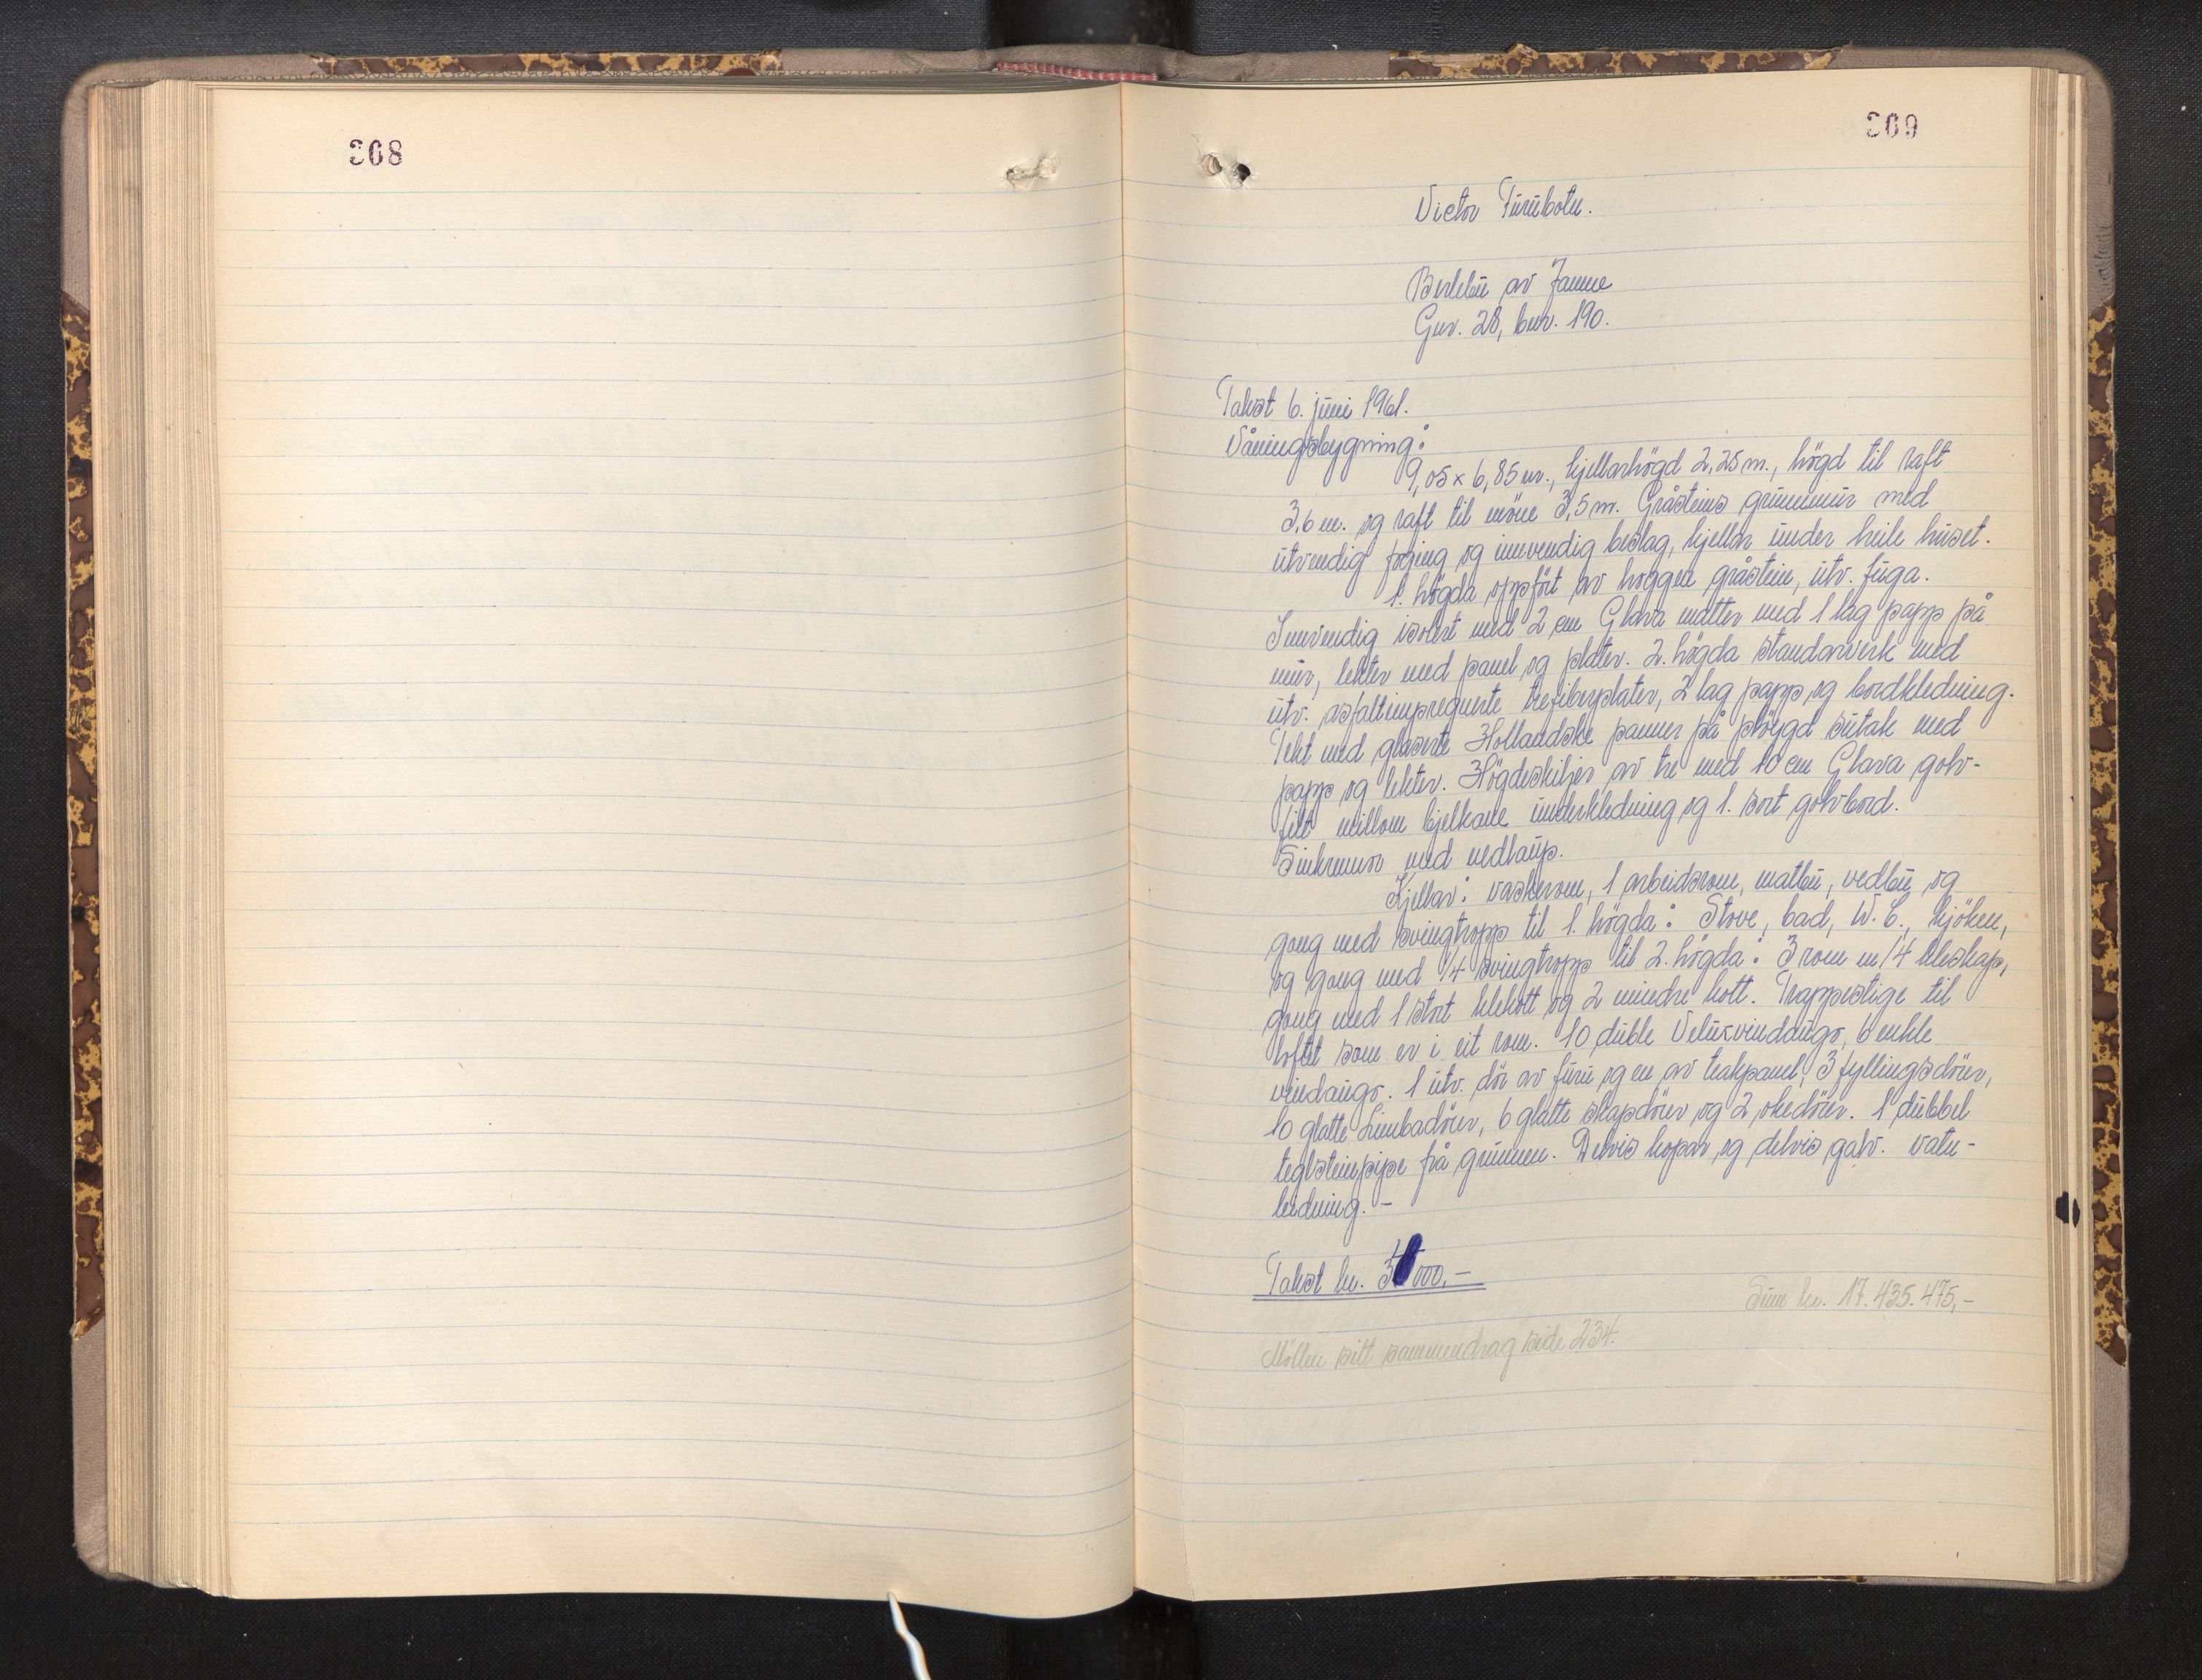 308
309
Victor Furubotn.
Berlebu av Jamne
Gnr. 28, bnr. 190.
Takst 6. juni 1961.
Våningsbygning:
9,05 x 6,85 m., kjellarhögd 2,25 m., högd til raft
3,6 m. og raft til möne 3,5 m. Gråsteins grunnmur med
utvendig foging og innvendig beslag, kjellar under heile huset.
1. högda oppfört av hoggen gråstein, utv. fuga.
Innvendig isolert med 2 cm Glava matter med 1 lag papp på
mur, lekter med panel og plater. 2. högda standarverk med
utv. asfaltimpregnerte trefiberplater, 2 lag papp og bordkledning.
Tekt med glaserte Hollandske panner på plöygd sutak med
papp og lekter. Högdeskiljer av tre med 10 cm Glava golv-
filt millom bjelkane underkledning og 1. sort golvbord.
Sinkrennor med nedlaup.
Kjellar: vaskerom, 1 arbeidsrom, matbu, vedbu og
gong med svingtropp til 1. högda: Stove, bad, W. C., kjöken,
og gong med 1/4 svingtropp til 2. högda: 3 rom m/4 kleskap,
gong med 1 stort klekott og 2 mindre kott. Trappestige til
loftet som er i eit rom. 10 duble Veluxvindaugo, 6 enkle
vindaugo. 1 utv. dör av furu og en av teakpanel, 3 fyllingsdörer,
10 glatte Limbadörer, 6 glatte skapdörer og 2 okedörer. 1 dubbel
teglsteinpipe frå grunnen. Delvis kopar og delvis galv. vatn-
leidning. -
Takst kr. 3 000.-
Sum kr. 17.435.475,-
Mollen sitt sammendrag side 234.